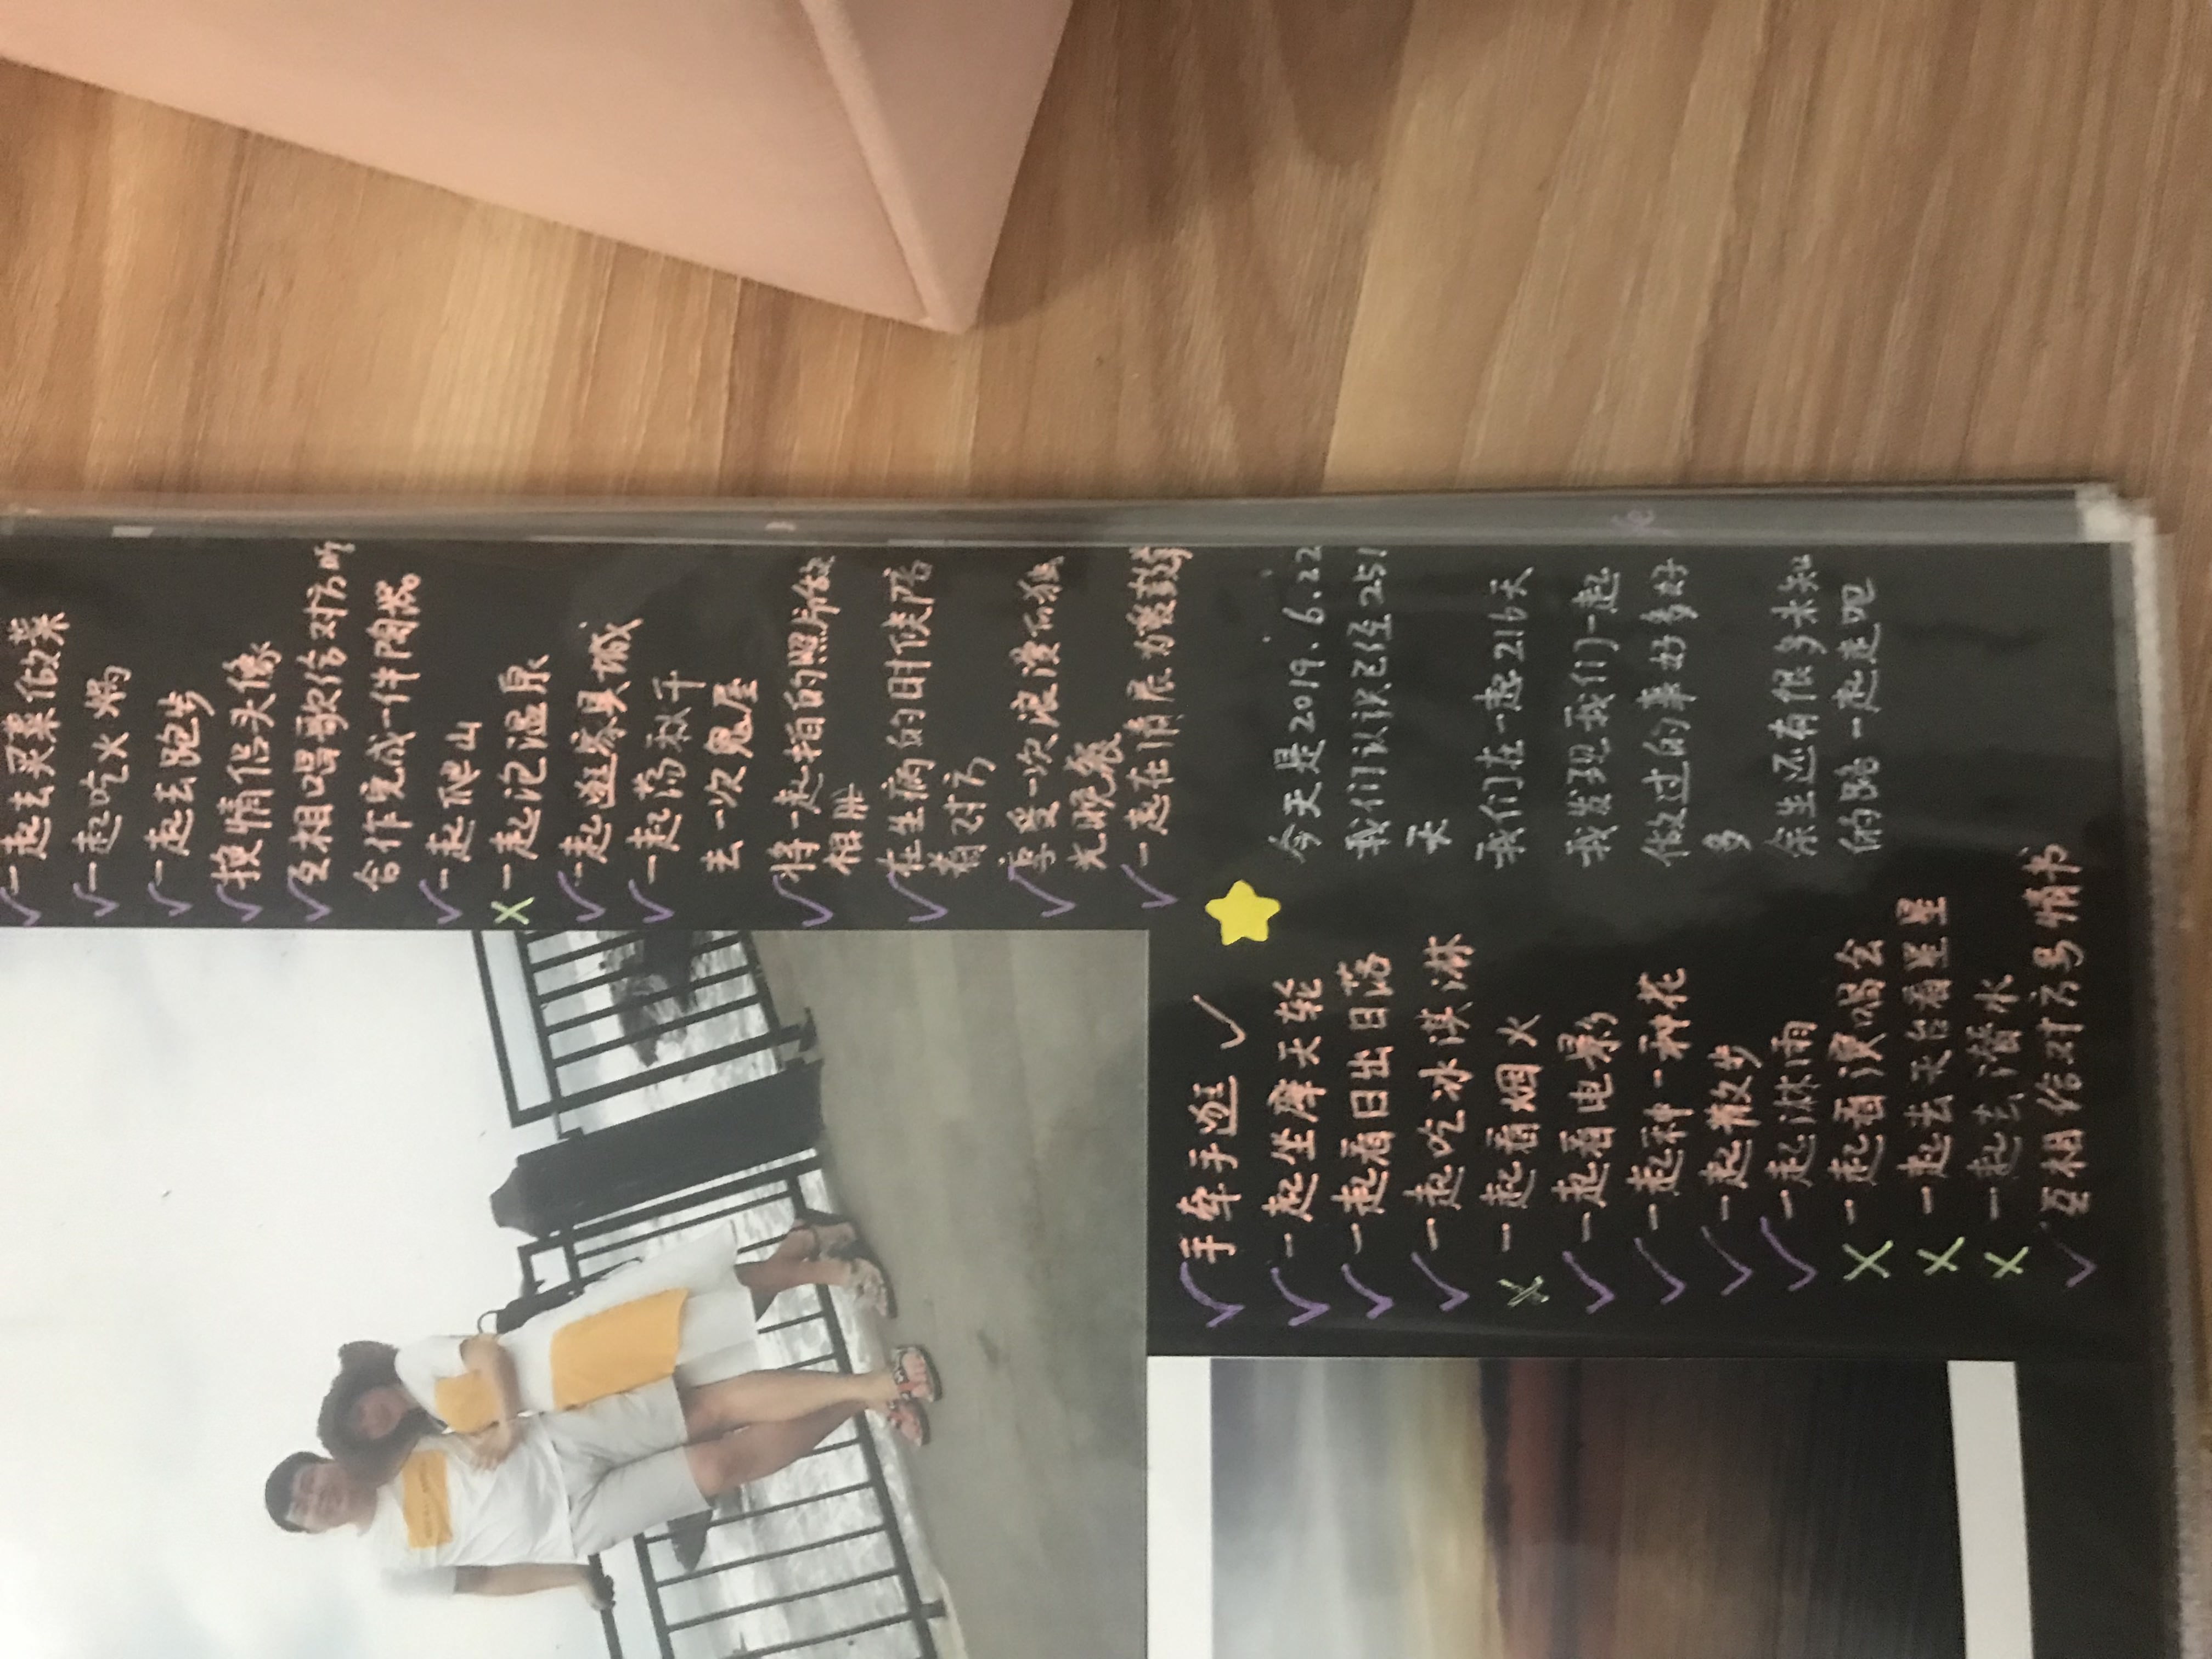 ✓一起去买菜做菜
✓一起吃火锅
✓一起去跑步
✓换情侣头像
✓互相唱歌给对方听
合作完成一件陶器
✓一起爬山
X一起泡温泉
✓一起逛家具城
✓一起荡秋千
去一次鬼屋
✓将一起拍的照片做
相册
✓在生病的时候陪
着对方
✓享受一次浪漫的烛
光晚餐
✓一起在清晨
✓手牵手逛✓
✓一起坐摩天轮
✓一起看日出日落
✓一起吃冰淇淋
X一起看烟火
✓一起看电影
✓一起种一种花
✓一起散步
✓一起淋雨
X一起看演唱会
X一起去天台看星星
X一起去潜水
✓互相给对方写情书
今天是2019.6.22
我们认识已经251
天
我们在一起216天
我发现我们一起
做过的事好多好
多
余生还有很多未知
的路一起走吧